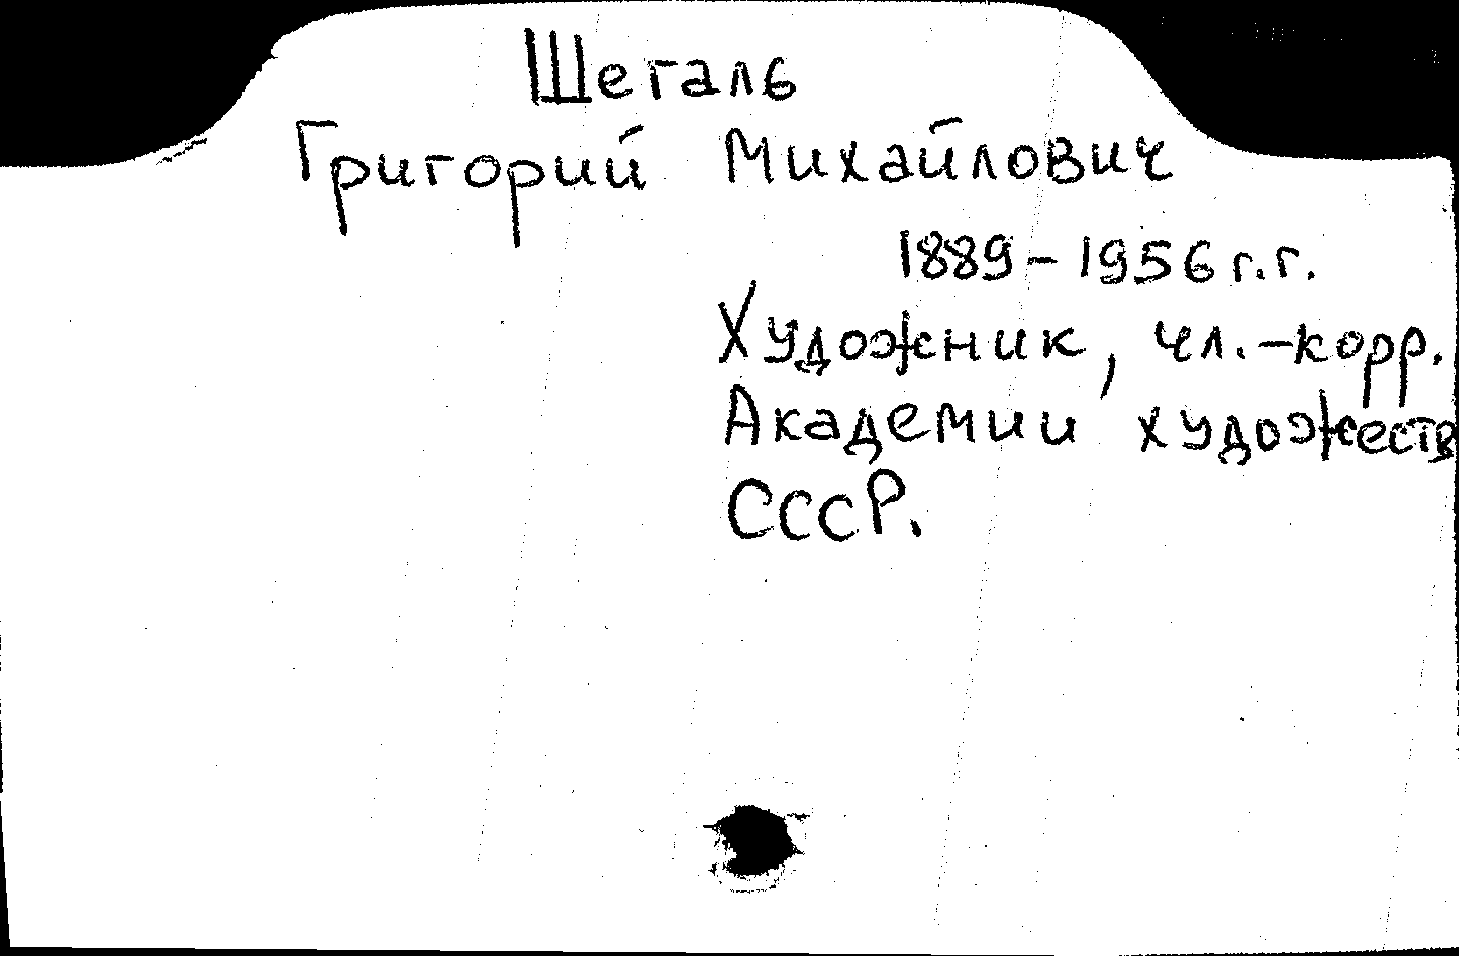 Шегаль
Григорий Михайлович
1889-1956 г.г.
Художник, чл.-корр.
Академии художеств
СССР.